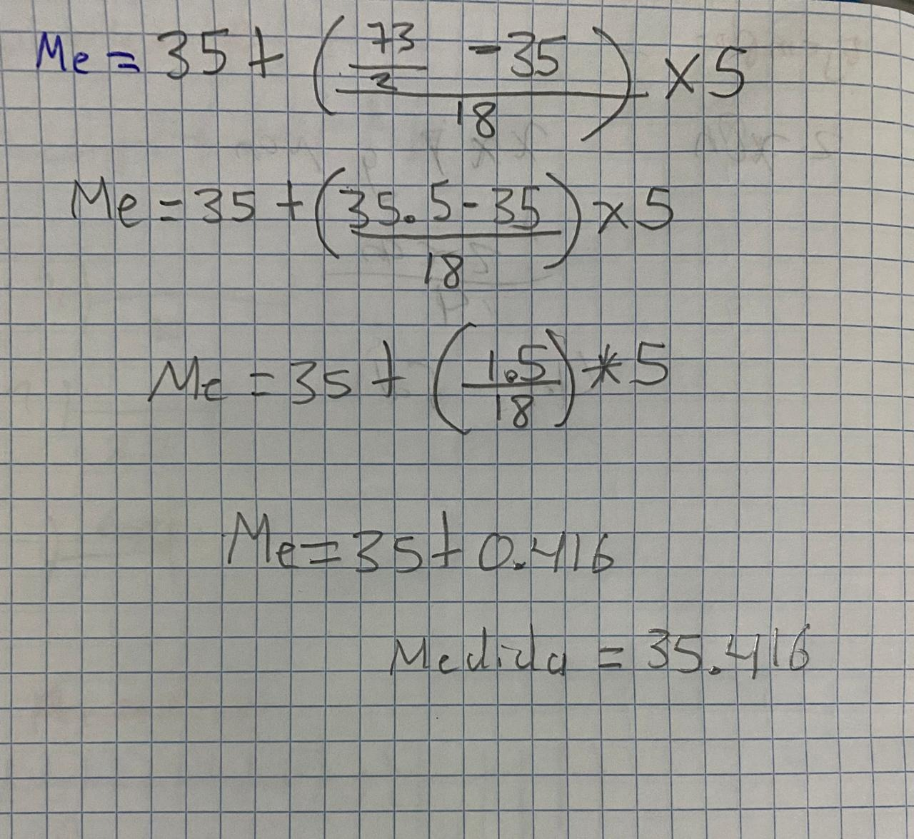 Me = 35 + ( (73/2 - 35) / 18 ) x 5
Me = 35 + ( (35.5 - 35) / 18 ) x 5
Me = 35 + ( 1.5 / 18 ) * 5
Me = 35 + 0.416
Medida = 35.416